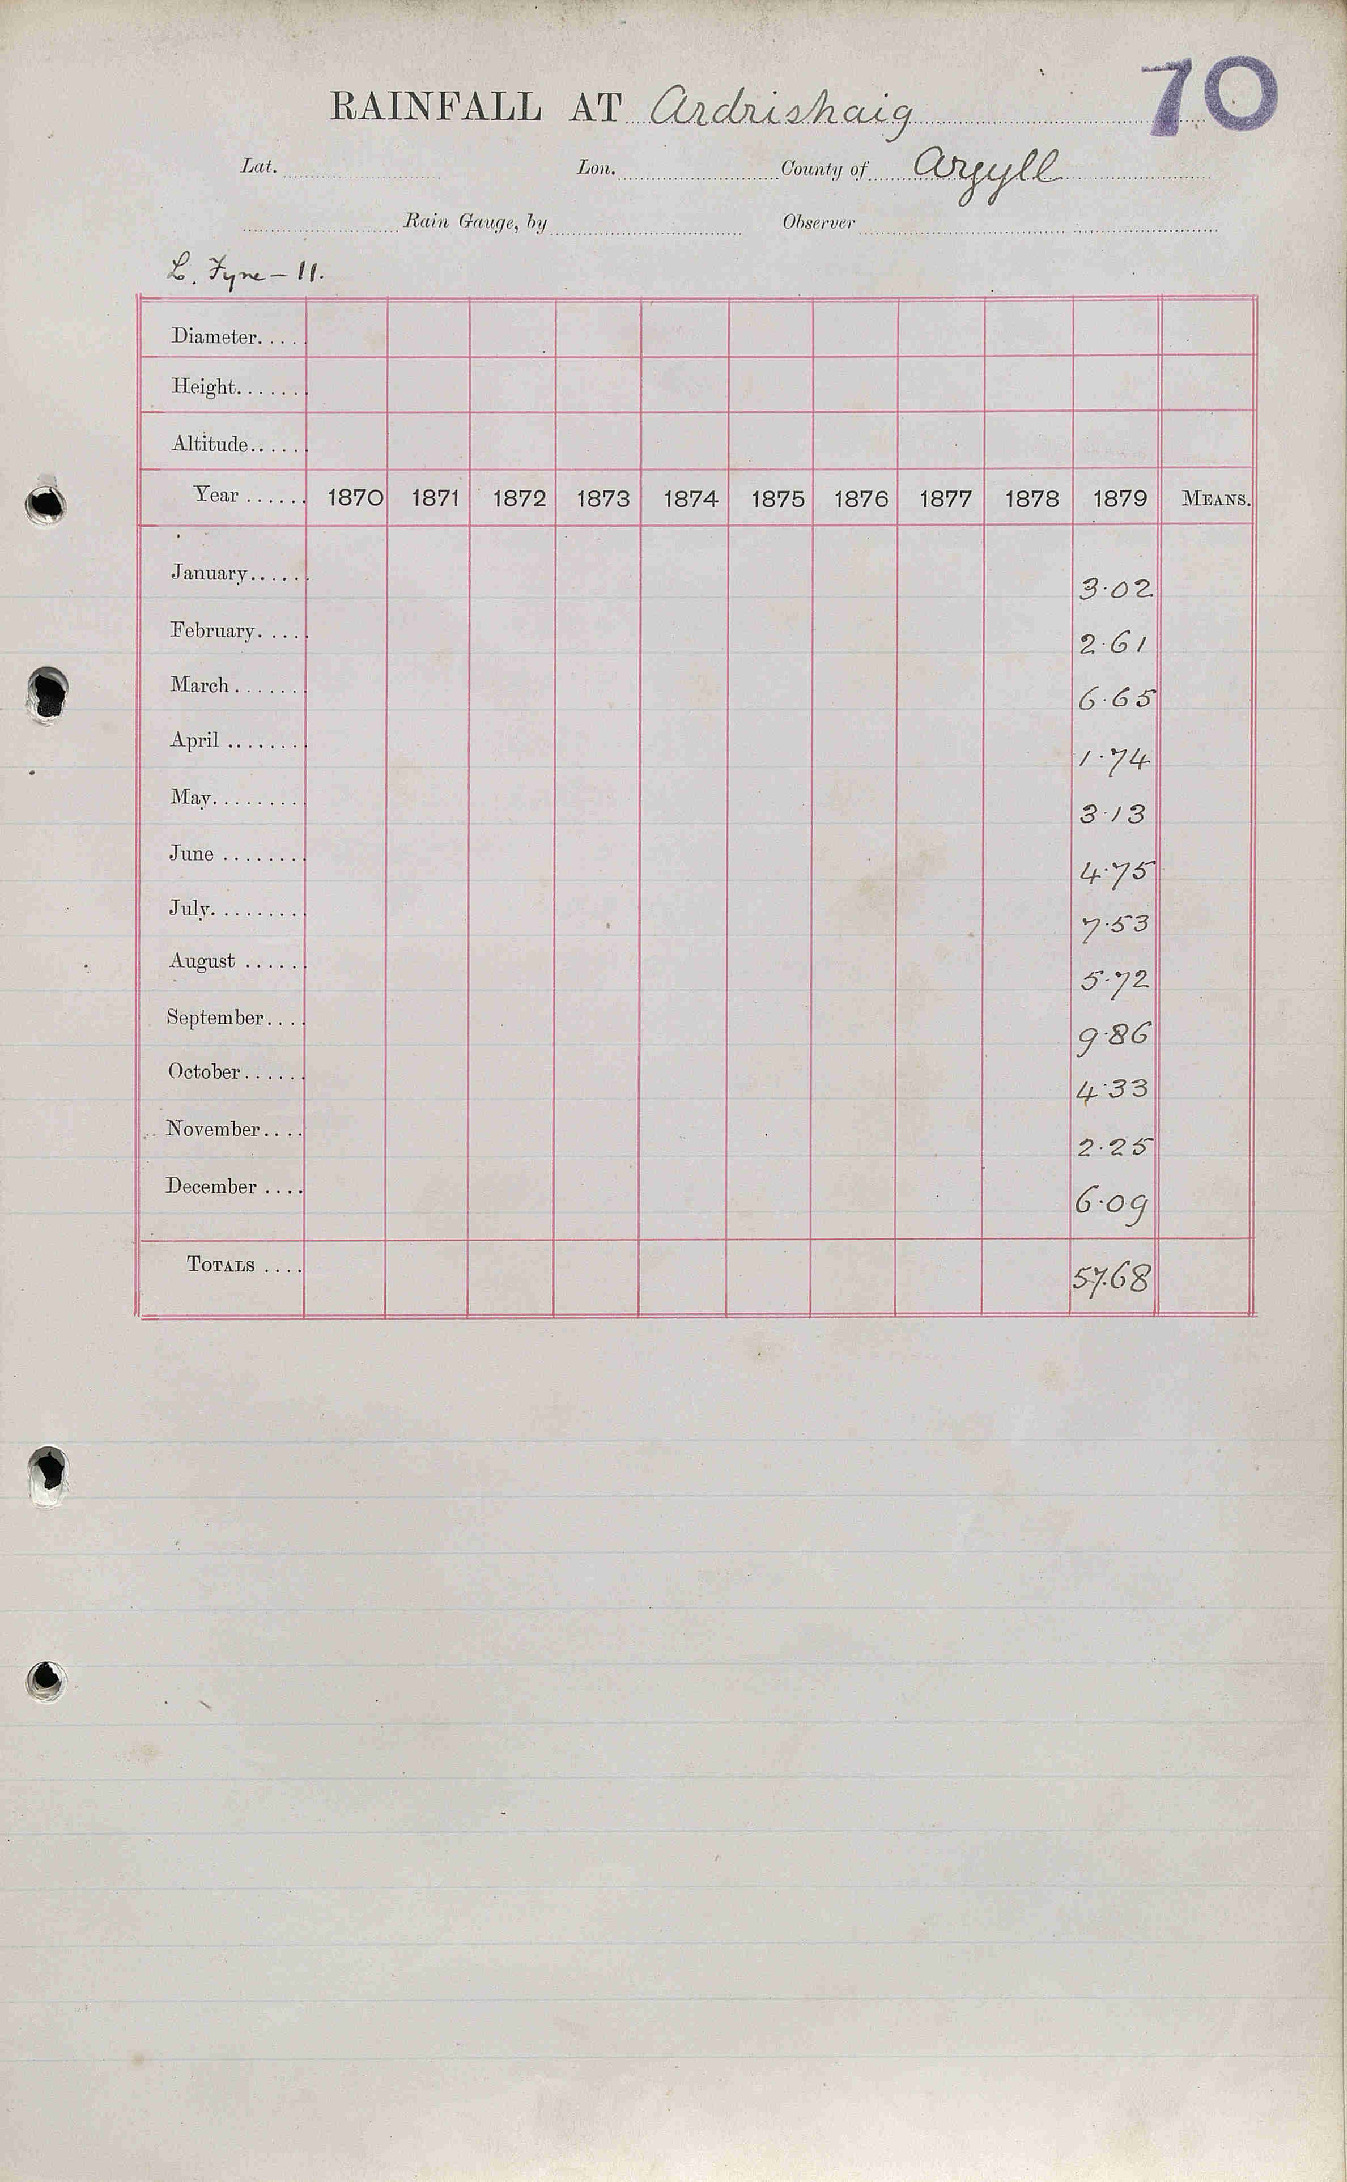 70
RAINFALL AT Ardrishaig
Lat. Lon. County of Argyll
Rain Gauge, by Observer
L. Fyne - 11.
Diameter.....
Height.......
Altitude......
Year ...... 1870 1871 1872 1873 1874 1875 1876 1877 1878 1879 MEANS.
January...... 3.02
February..... 2.61
March ....... 6.65
April ........ 1.74
May......... 3.13
June ........ 4.75
July......... 7.53
August ...... 5.72
September.... 9.86
October...... 4.33
November.... 2.25
December .... 6.09
TOTALS .... 57.68